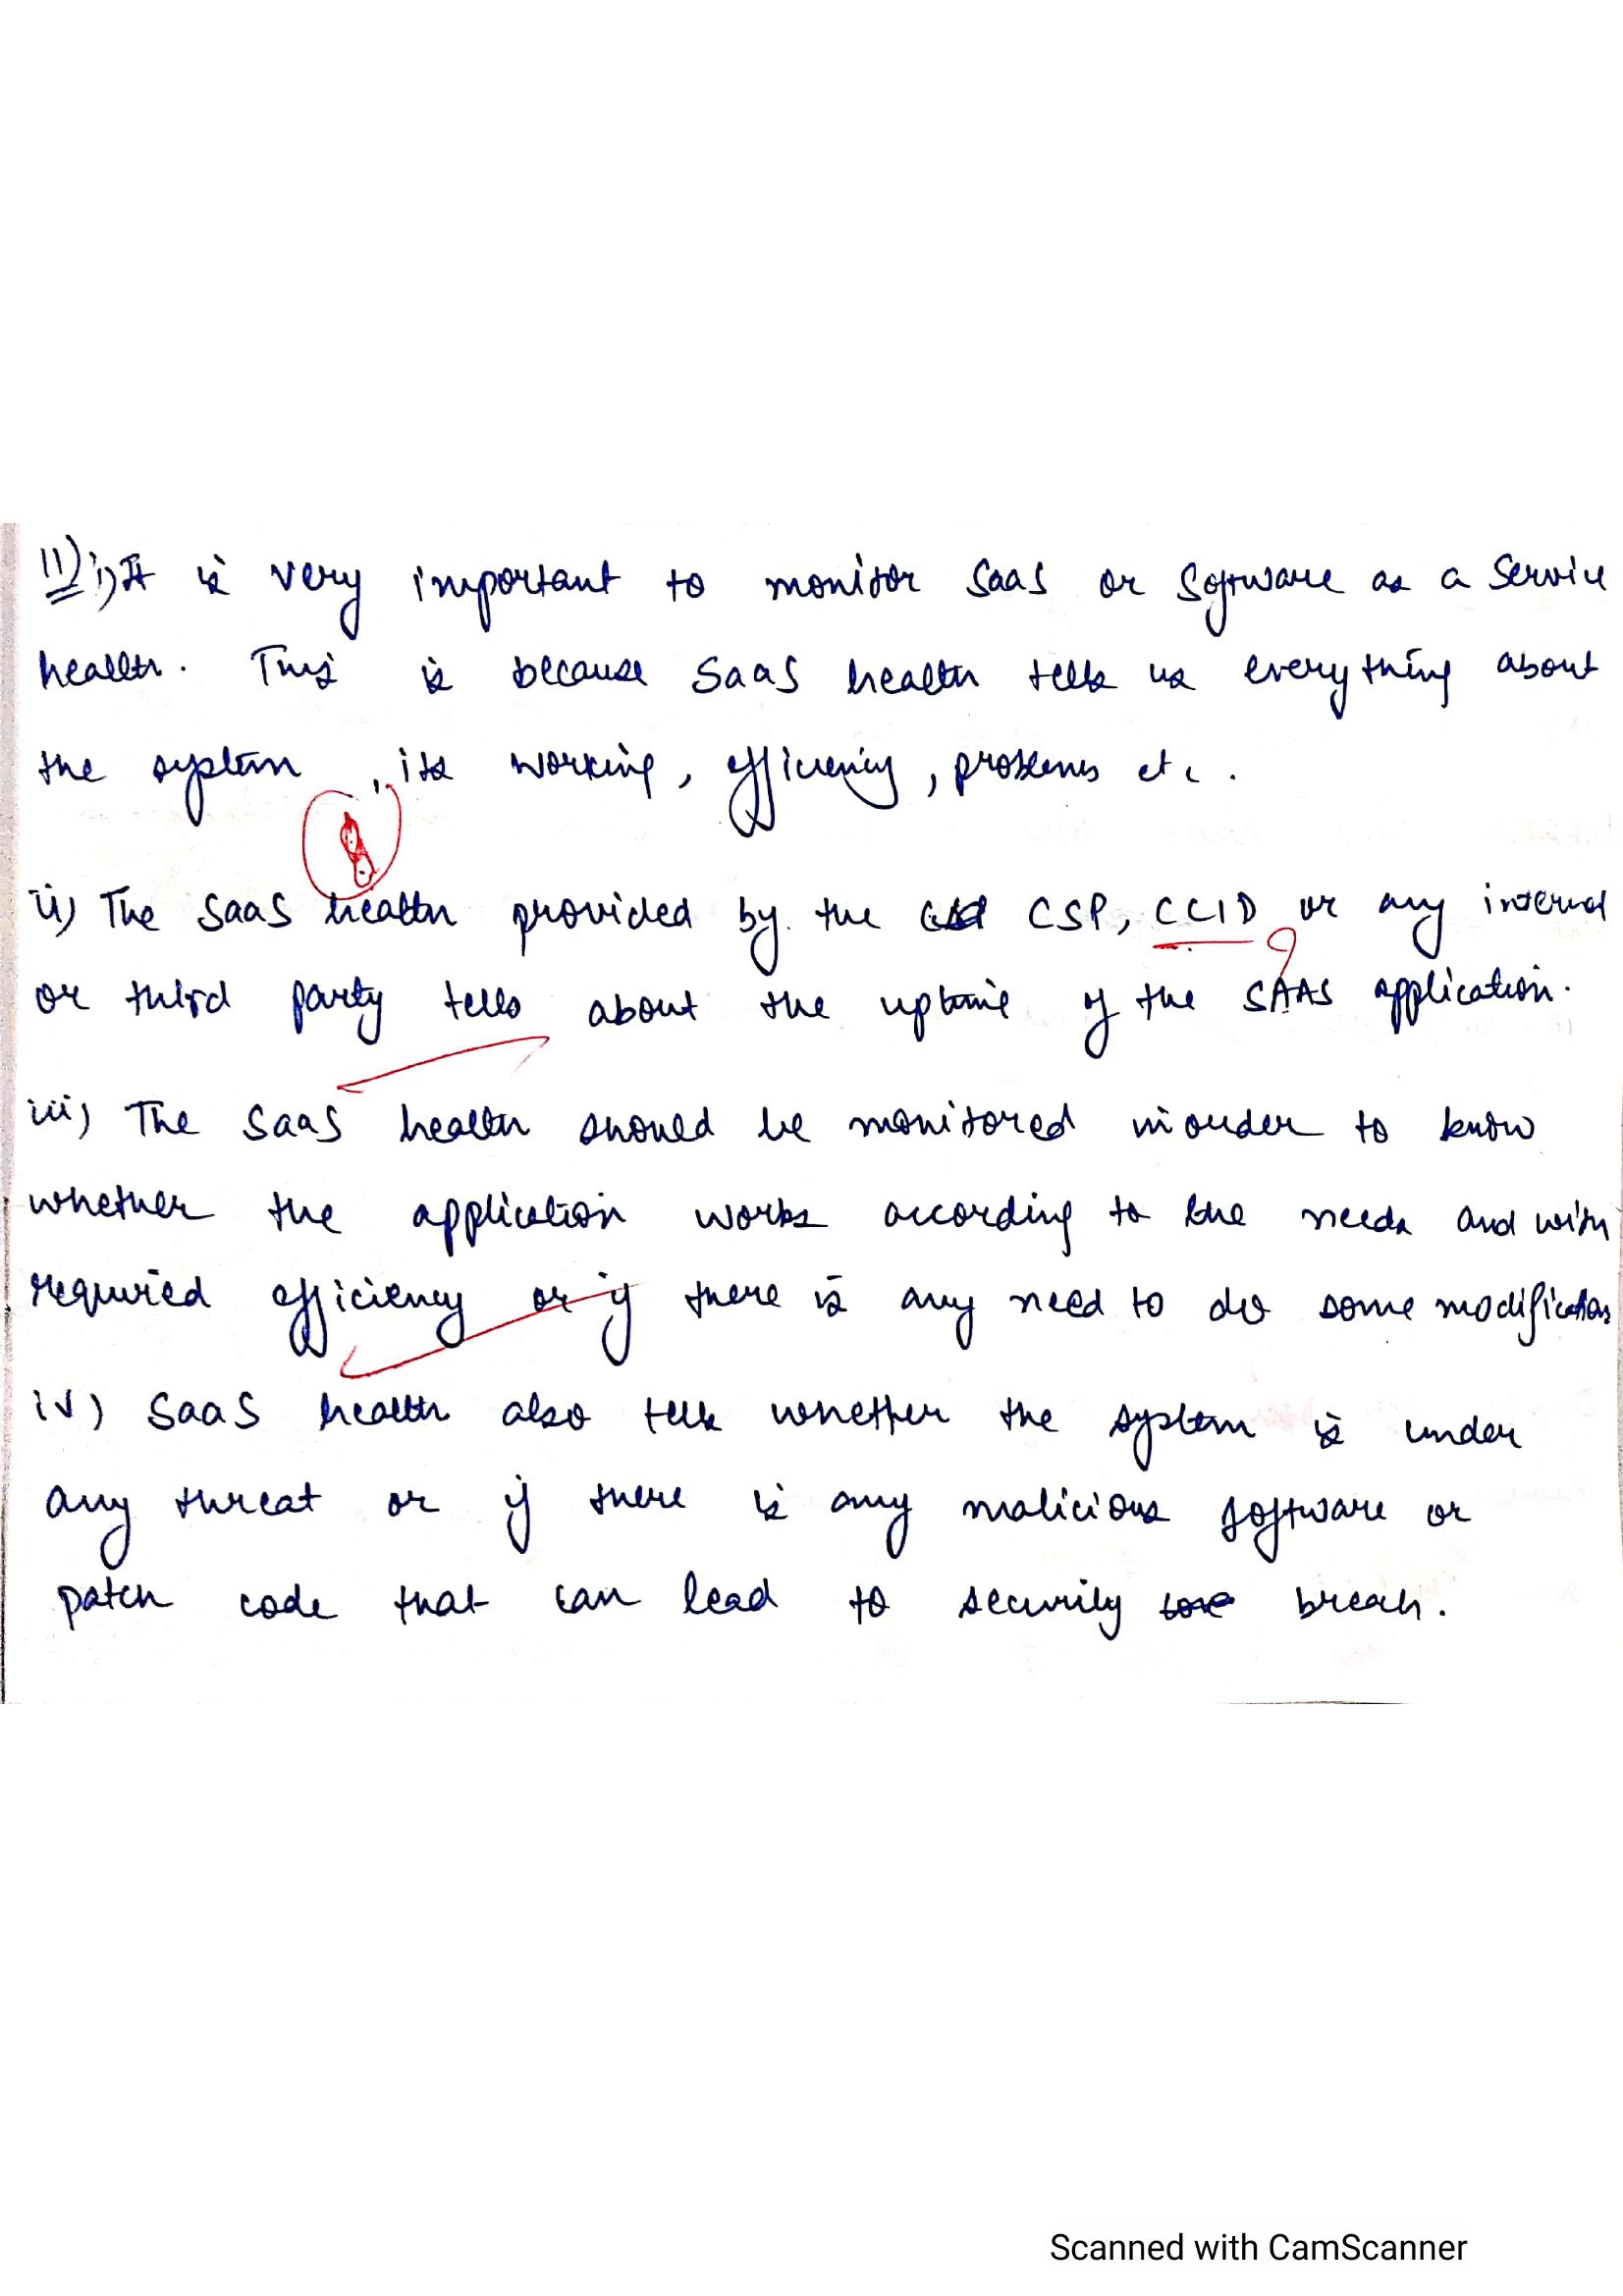 11) i) It is very important to monitor SaaS or Software as a Service
health. This is because SaaS health tells us everything about
the system, its working, efficiency, problems etc.
ii) The SaaS health provided by the CSP, CCID or any internal
or third party tells about the uptime of the SAAS application.
iii) The SaaS health should be monitored inorder to know
whether the application works according to the needs and with
required efficiency or if there is any need to do some modification
iv) SaaS health also tells whether the system is under
any threat or if there is any malicious software or
patch code that can lead to security breach.
Scanned with CamScanner